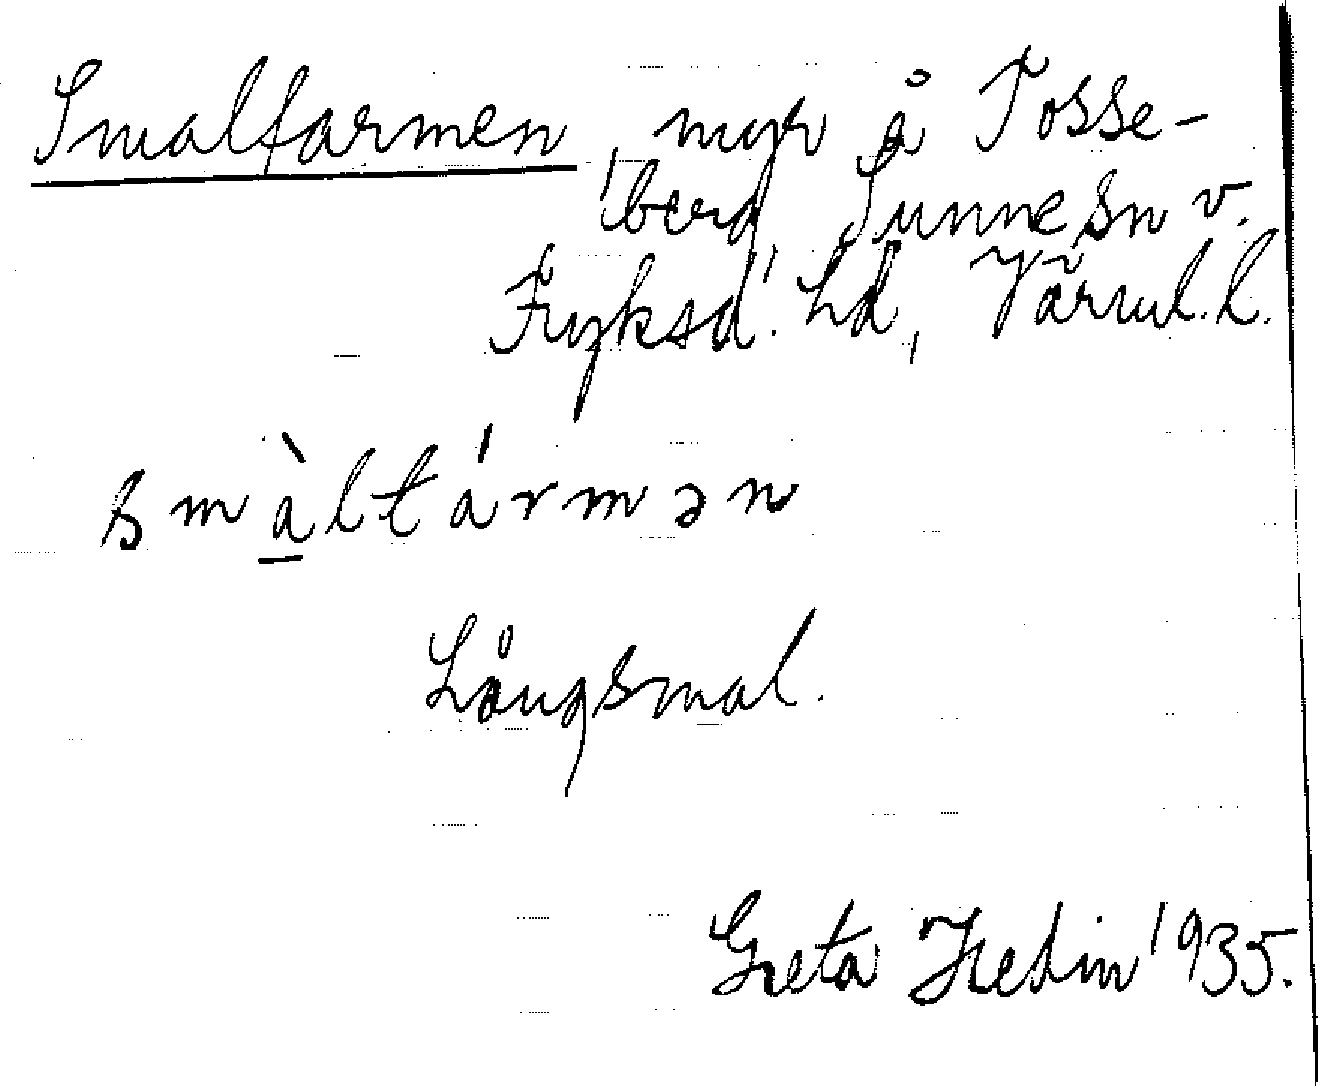 Smalfarmen, myr å Tosse-
berg Sunne sn v.
Fryksd. hd, Värml. l.
smàltármən
Långsmal.
Greta Hedin 1935.